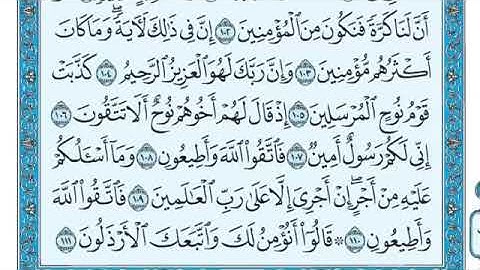 أَنَّ لَنَا كَرَّةً فَنَكُونَ مِنَ ٱلْمُؤْمِنِينَ ١٠٢ إِنَّ فِى ذَٰلِكَ لَءَايَةً ۖ وَمَا كَانَ
أَكْثَرُهُم مُّؤْمِنِينَ ١٠٣ وَإِنَّ رَبَّكَ لَهُوَ ٱلْعَزِيزُ ٱلرَّحِيمُ ١٠٤ كَذَّبَتْ
قَوْمُ نُوحٍ ٱلْمُرْسَلِينَ ١٠٥ إِذْ قَالَ لَهُمْ أَخُوهُمْ نُوحٌ أَلَا تَتَّقُونَ ١٠٦
إِنِّى لَكُمْ رَسُولٌ أَمِينٌ ١٠٧ فَٱتَّقُوا۟ ٱللَّهَ وَأَطِيعُونِ ١٠٨ وَمَآ أَسْـَٔلُكُمْ
عَلَيْهِ مِنْ أَجْرٍ ۖ إِنْ أَجْرِىَ إِلَّا عَلَىٰ رَبِّ ٱلْعَٰلَمِينَ ١٠٩ فَٱتَّقُوا۟ ٱللَّهَ
وَأَطِيعُونِ ١١٠ ۞ قَالُوٓا۟ أَنُؤْمِنُ لَكَ وَٱتَّبَعَكَ ٱلْأَرْذَلُونَ ١١١